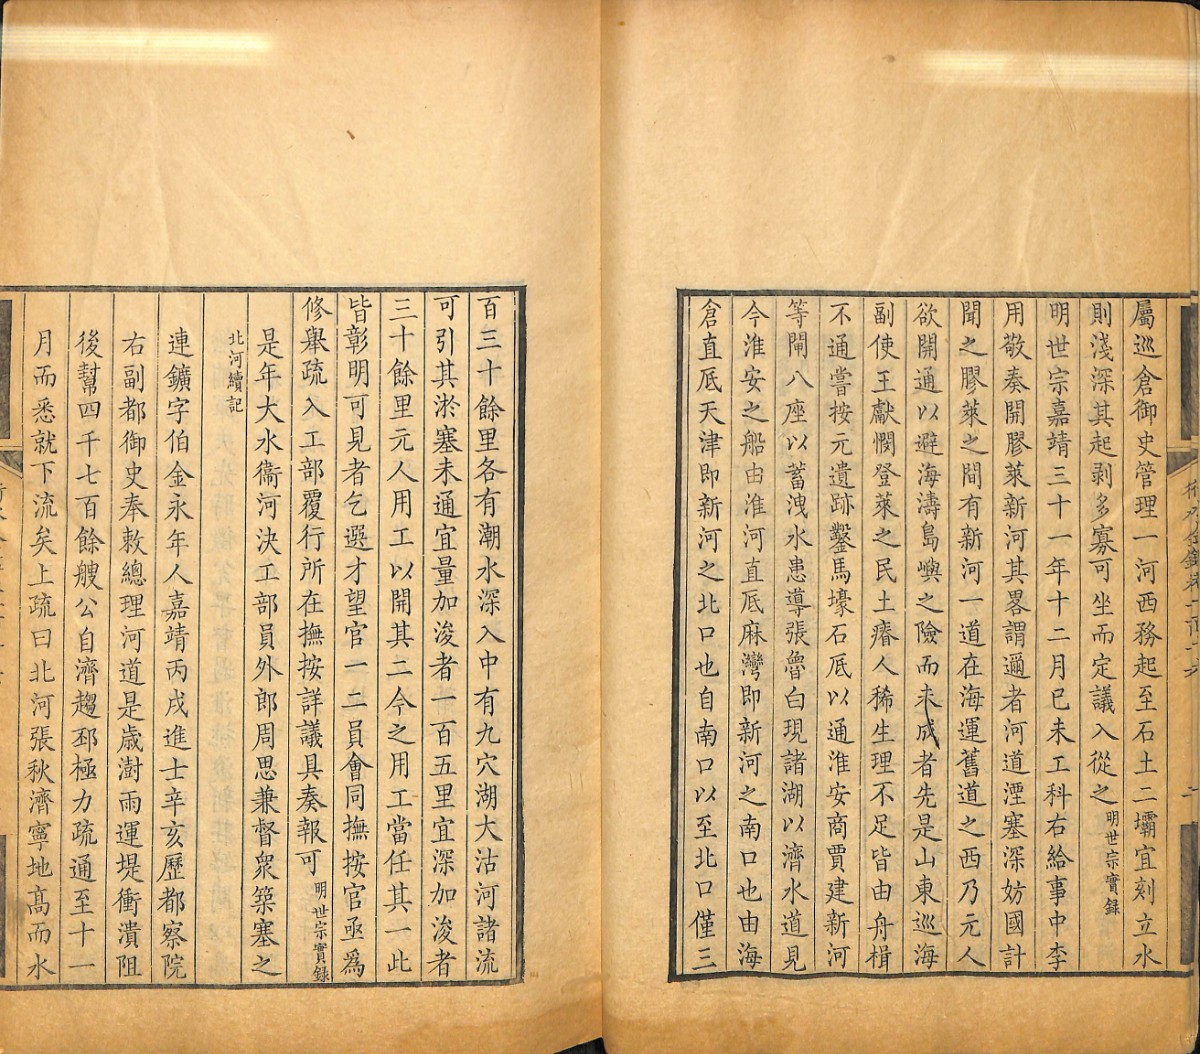 屬巡倉御史管理一河西務起至石土二壩宜刻立水
則淺深其起剥多寡可坐而定議入從之明世宗實錄
明世宗嘉靖三十一年十二月巳未工科右給事中李
用敬奏開膠萊新河其畧謂邇者河道湮塞深妨國計
聞之膠萊之間有新河一道在海運舊道之西乃元人
欲開通以避海濤島嶼之險而未成者先是山東巡海
副使王獻憫登萊之民土瘠人稀生理不足皆由舟楫
不通嘗按元遺跡鑿馬壕石厎以通淮安商賈建新河
等閘八座以蓄洩水患導張魯白現諸湖以濟水道見
今淮安之船由淮河直厎麻灣即新河之南口也由海
倉直厎天津即新河之北口也自南口以至北口僅三
百三十餘里各有潮水深入中有九穴湖大沽河諸流
可引其淤塞未通宜量加浚者一百五里宜深加浚者
三十餘里元人用工以開其二今之用工當任其一此
皆彰明可見者乞選才望官一二員會同撫按官亟為
修舉疏入工部覆行所在撫按詳議具奏報可明世宗實錄
是年大水衞河決工部員外郎周思兼督衆築塞之
北河續記
連鑛字伯金永年人嘉靖丙戌進士辛亥歷都察院
右副都御史奉敕總理河道是歲澍雨運堤衝潰阻
後幫四千七百餘艘公自濟趨邳極力疏通至十一
月而悉就下流矣上疏曰北河張秋濟寧地高而水